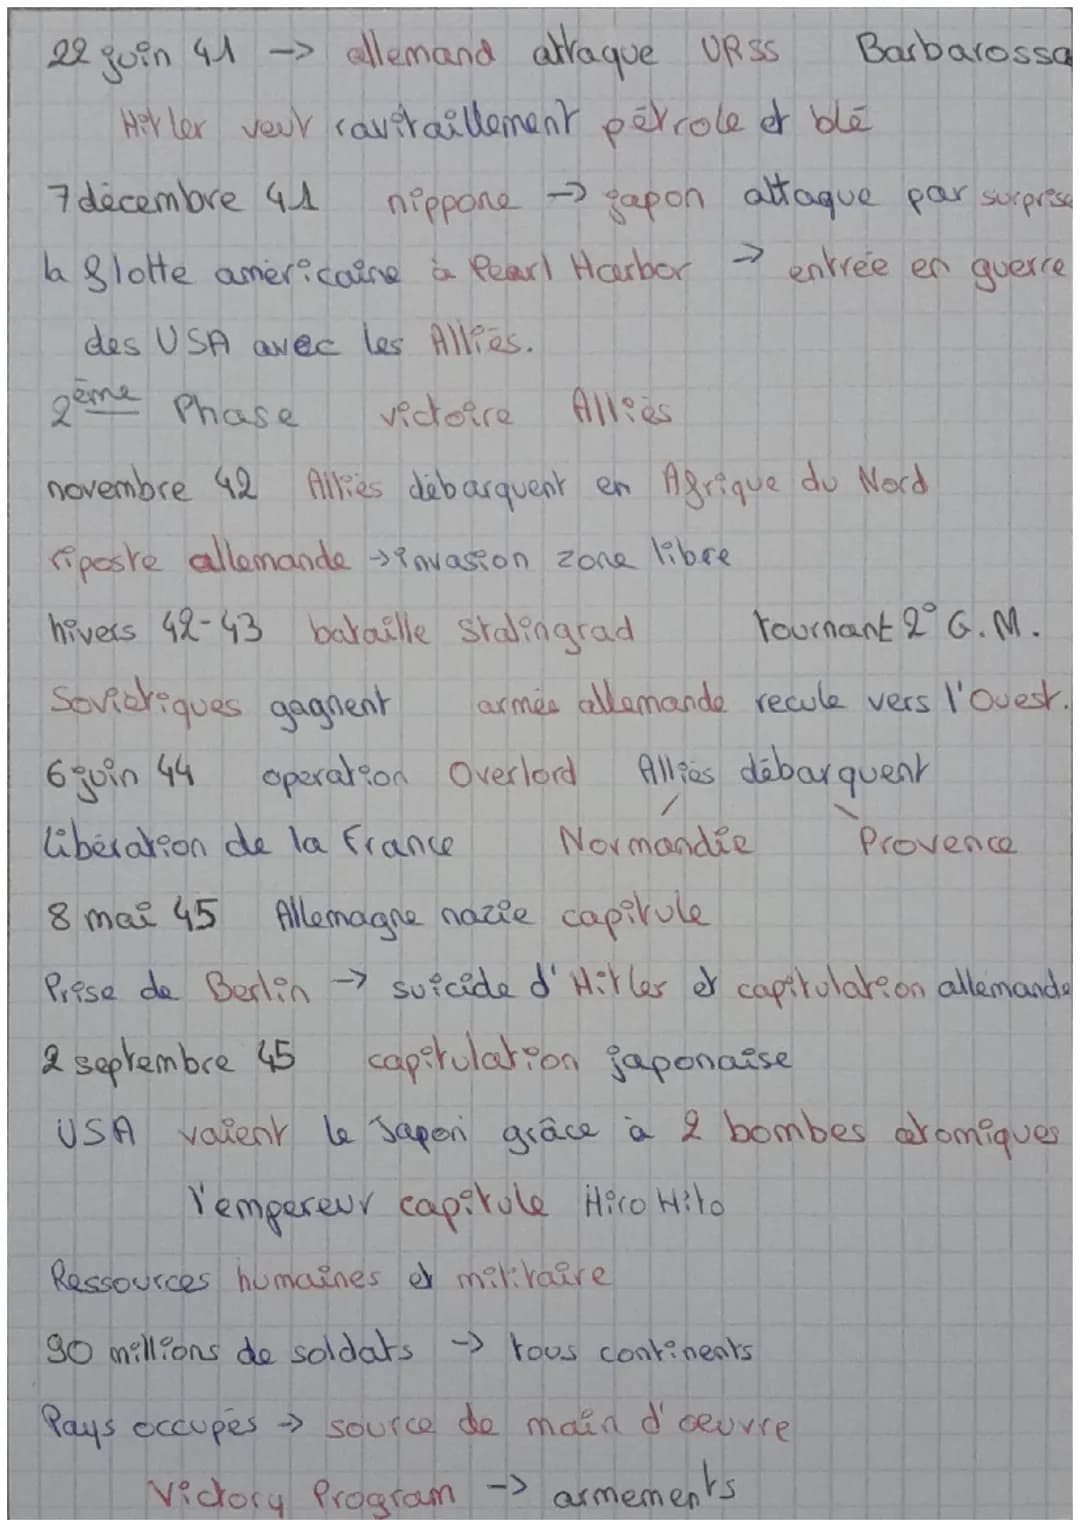 22 juin 41 -> allemand attaque URSS Barbarossa
Hitler veut ravitaillement pétrole et blé
7 décembre 41 nippone -> japon attaque par surprise
la flotte américaine à Pearl Harbor -> entrée en guerre
des USA avec les Alliés.
2ème Phase victoire Alliés
novembre 42 Alliés débarquent en Afrique du Nord
riposte allemande -> invasion zone libre
hivers 42-43 bataille Stalingrad tournant 2° G.M.
Soviétiques gagnent armée allemande recule vers l'Ouest.
6 juin 44 operation Overlord Alliés débarquent
libération de la France Normandie Provence
8 mai 45 Allemagne nazie capitule
Prise de Berlin -> suicide d'Hitler et capitulation allemande
2 septembre 45 capitulation japonaise
USA vaient le Japon grâce à 2 bombes atomiques
l'empereur capitule Hiro Hito
Ressources humaines et militaire
90 millions de soldats -> tous continents
Pays occupés -> source de main d'œuvre
Victory Program -> armements